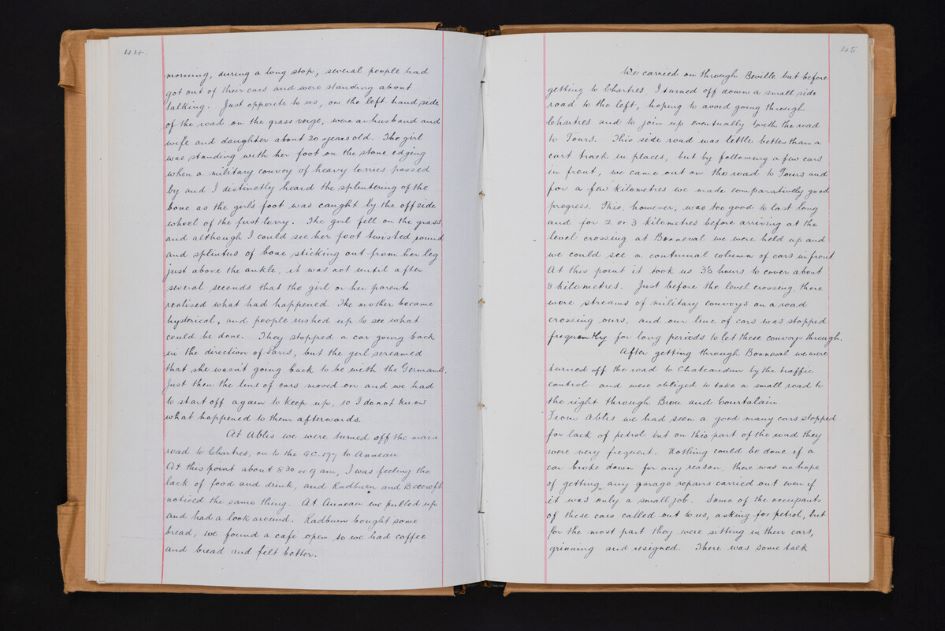 44.
morning, during a long stop, several people had
got out of their cars and were standing about
talking. Just opposite to us, on the left hand side
of the road on the grass verge, were a husband and
wife and daughter about 20 years old. The girl
was standing with her foot on the stone edging
when a military convoy of heavy lorries passed
by and I distinctly heard the splintering of the
bone as the girls foot was caught by the off side
wheel of the first lorry. The girl fell on the grass,
and although I could see her foot twisted round
and splinters of bone sticking out from her leg
just above the ankle, it was not until after
several seconds that the girl or her parents
realised what had happened. The mother became
hysterical, and people rushed up to see what
could be done. They stopped a car going back
in the direction of Paris, but the girl screamed
that she wasn't going back to be with the Germans.
Just then the line of cars moved on and we had
to start off again to keep up, so I do not know
what happened to them afterwards.
At Ablis we were turned off the main
road to Chartres, on to the G.C. 177 to Auneau
At this point about 8.30 or 9 am, I was feeling the
lack of food and drink, and Radburn and
noticed the same thing. At Auneau we pulled up
and had a look around. Radburn bought some
bread, we found a cafe open so we had coffee
and bread and felt better.
45
We carried on through Beville but before
getting to Chartres I turned off down a small side
road to the left, hoping to avoid going through
Chartres and to join up eventually with the road
to Tours. This side road was little better than a
cart track in places, but by following a few cars
in front, we came out on the road to Tours and
for a few kilometres we made comparatively good
progress. This, however, was too good to last long
and for 2 or 3 kilometres before arriving at the
level crossing at Bonneval we were held up and
we could see a continual column of cars in front
At this point it took us 3½ hours to cover about
3 kilometres. Just before the level crossing, there
were streams of military convoys on a road
crossing ours, and our line of cars was stopped
frequently for long periods to let these convoys through.
After getting through Bonneval we were
turned off the road to Chateaudun by the traffic
control and were obliged to take a small road to
the right through Brou and Courtalain
From Ablis we had seen a good many cars stopped
for lack of petrol but on this part of the road they
were very frequent. Nothing could be done if a
car broke down for any reason, there was no hope
of getting any garage repairs carried out even if
it was only a small job. Some of the occupants
of these cars called out to us, asking for petrol, but
for the most part they were sitting in their cars,
grinning and resigned. There was some talk